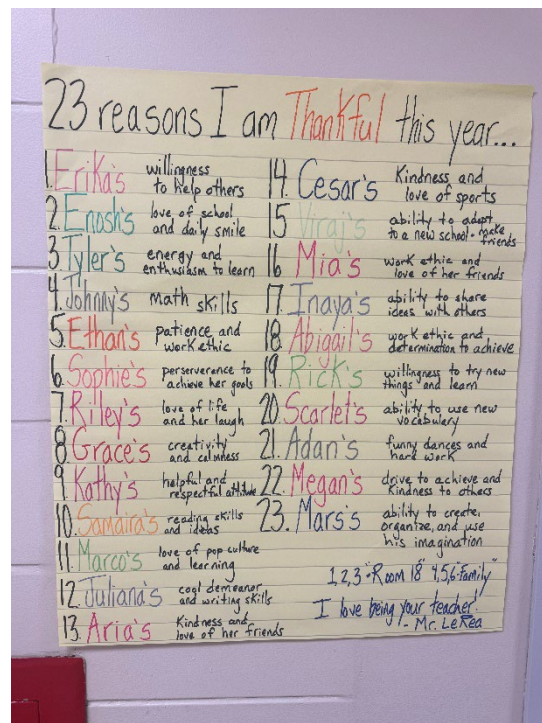 23 reasons I am Thankful this year...
1. Erika's willingness
to help others
2. Enosh's love of school
and daily smile
3. Tyler's energy and
enthusiasm to learn
4. Johnny's math skills
5. Ethan's patience and
work ethic
6. Sophie's perserverance to
achieve her goals
7. Riley's love of life
and her laugh
8. Grace's creativity
and calmness
9. Kathy's helpful and
respectful attitude
10. Samaira's reading skills
and ideas
11. Marco's love of pop culture
and learning
12. Juliana's cool demeanor
and writing skills
13. Aria's Kindness and
love of her friends
14. Cesar's Kindness and
love of sports
15 Viraj's ability to adapt
to a new school + make
friends
16 Mia's work ethic and
love of her friends
17. Inaya's ability to share
ideas with others
18. Abigail's work ethic and
determination to achieve
19. Rick's willingness to try new
things and learn
20. Scarlet's ability to use new
vocabulary
21. Adan's funny dances and
hard work
22. Megan's drive to achieve and
Kindness to others
23. Mars's ability to create,
organize, and use
his imagination
1,2,3 "Room 18" 4,5,6 "Family"
I love being your teacher!
- Mr. LeRea